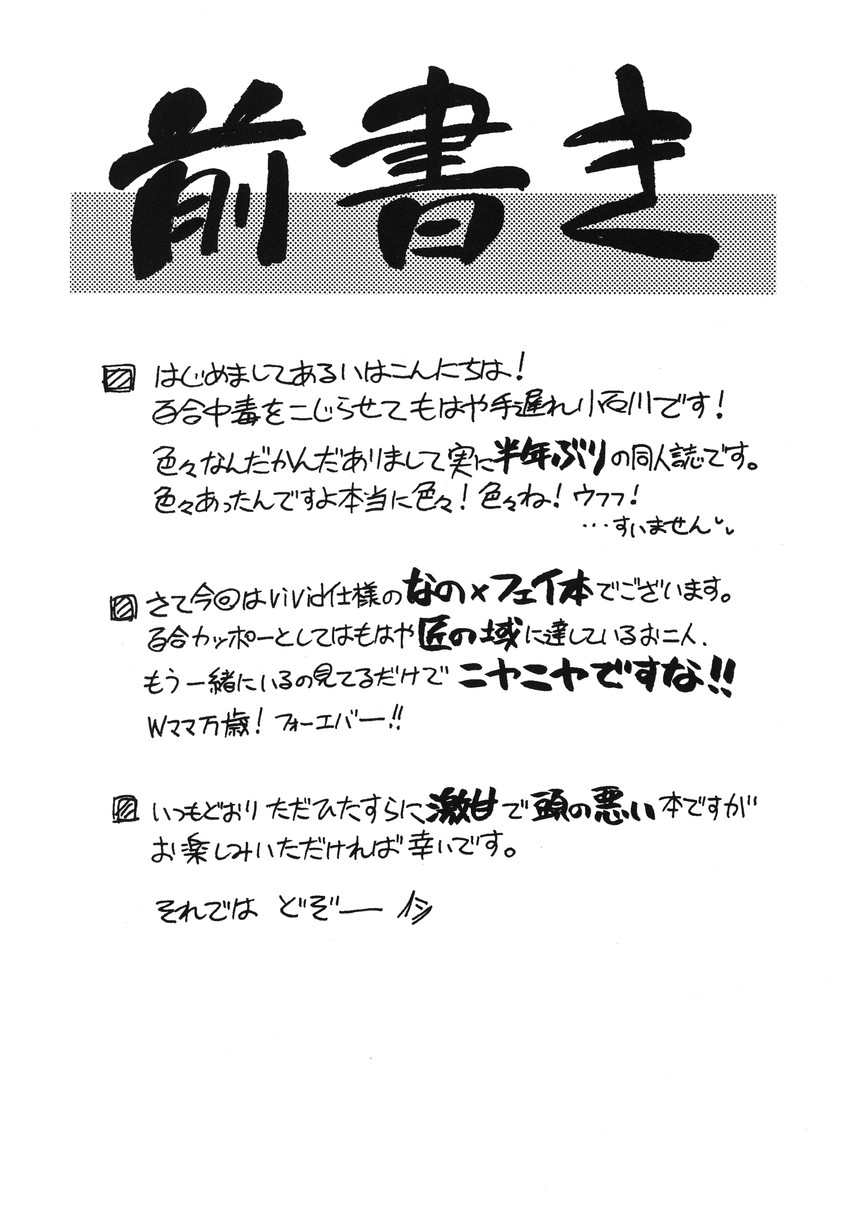 前書き
はじめましてあるいはこんにちは!
百合中毒をこじらせてもはや手遅れ小石川です!
色々なんだかんだありまして実に半年ぶりの同人誌です。
色々あったんですよ本当に色々!色々ね!ウフフ!
…すいません
さて今回はVividi仕様のなの×フェイ本でございます。
百合カッポーとしてはもはや匠の域に達しているお二人、
もう一緒にいるの見てるだけでニヤニヤですな!!
Wママ万歳!フォーエバー!!
いつもどおりただひたすらに激甘で頭の悪い本ですが
お楽しみいただければ幸いです。
それでは どぞー イシ